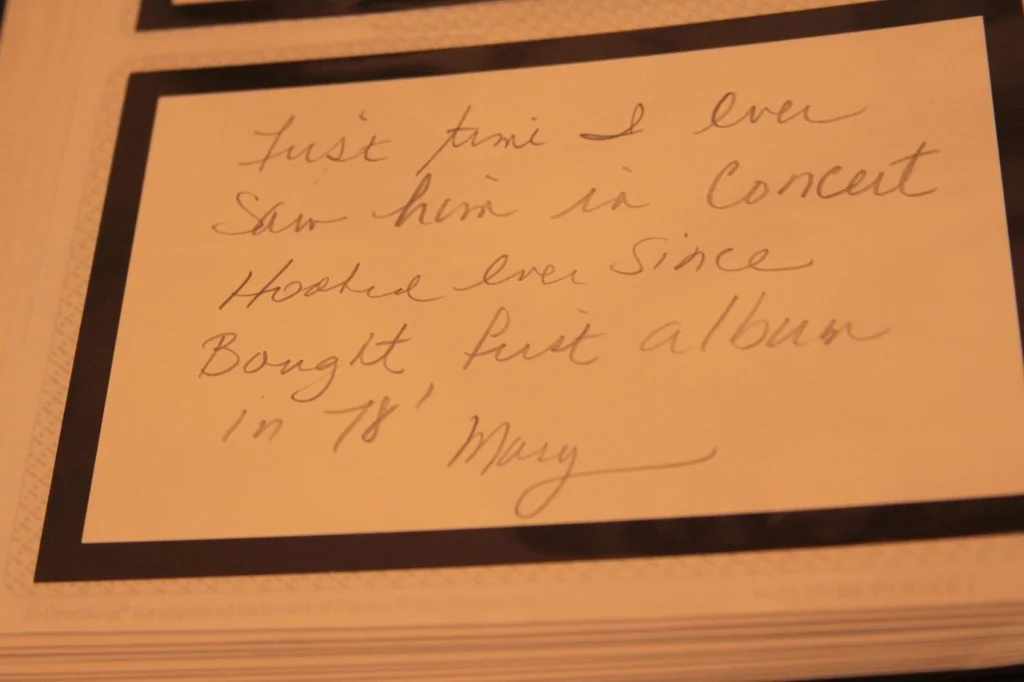 First time I ever
Saw him in Concert
Hooked ever since
Bought first album
in 78'
Mary